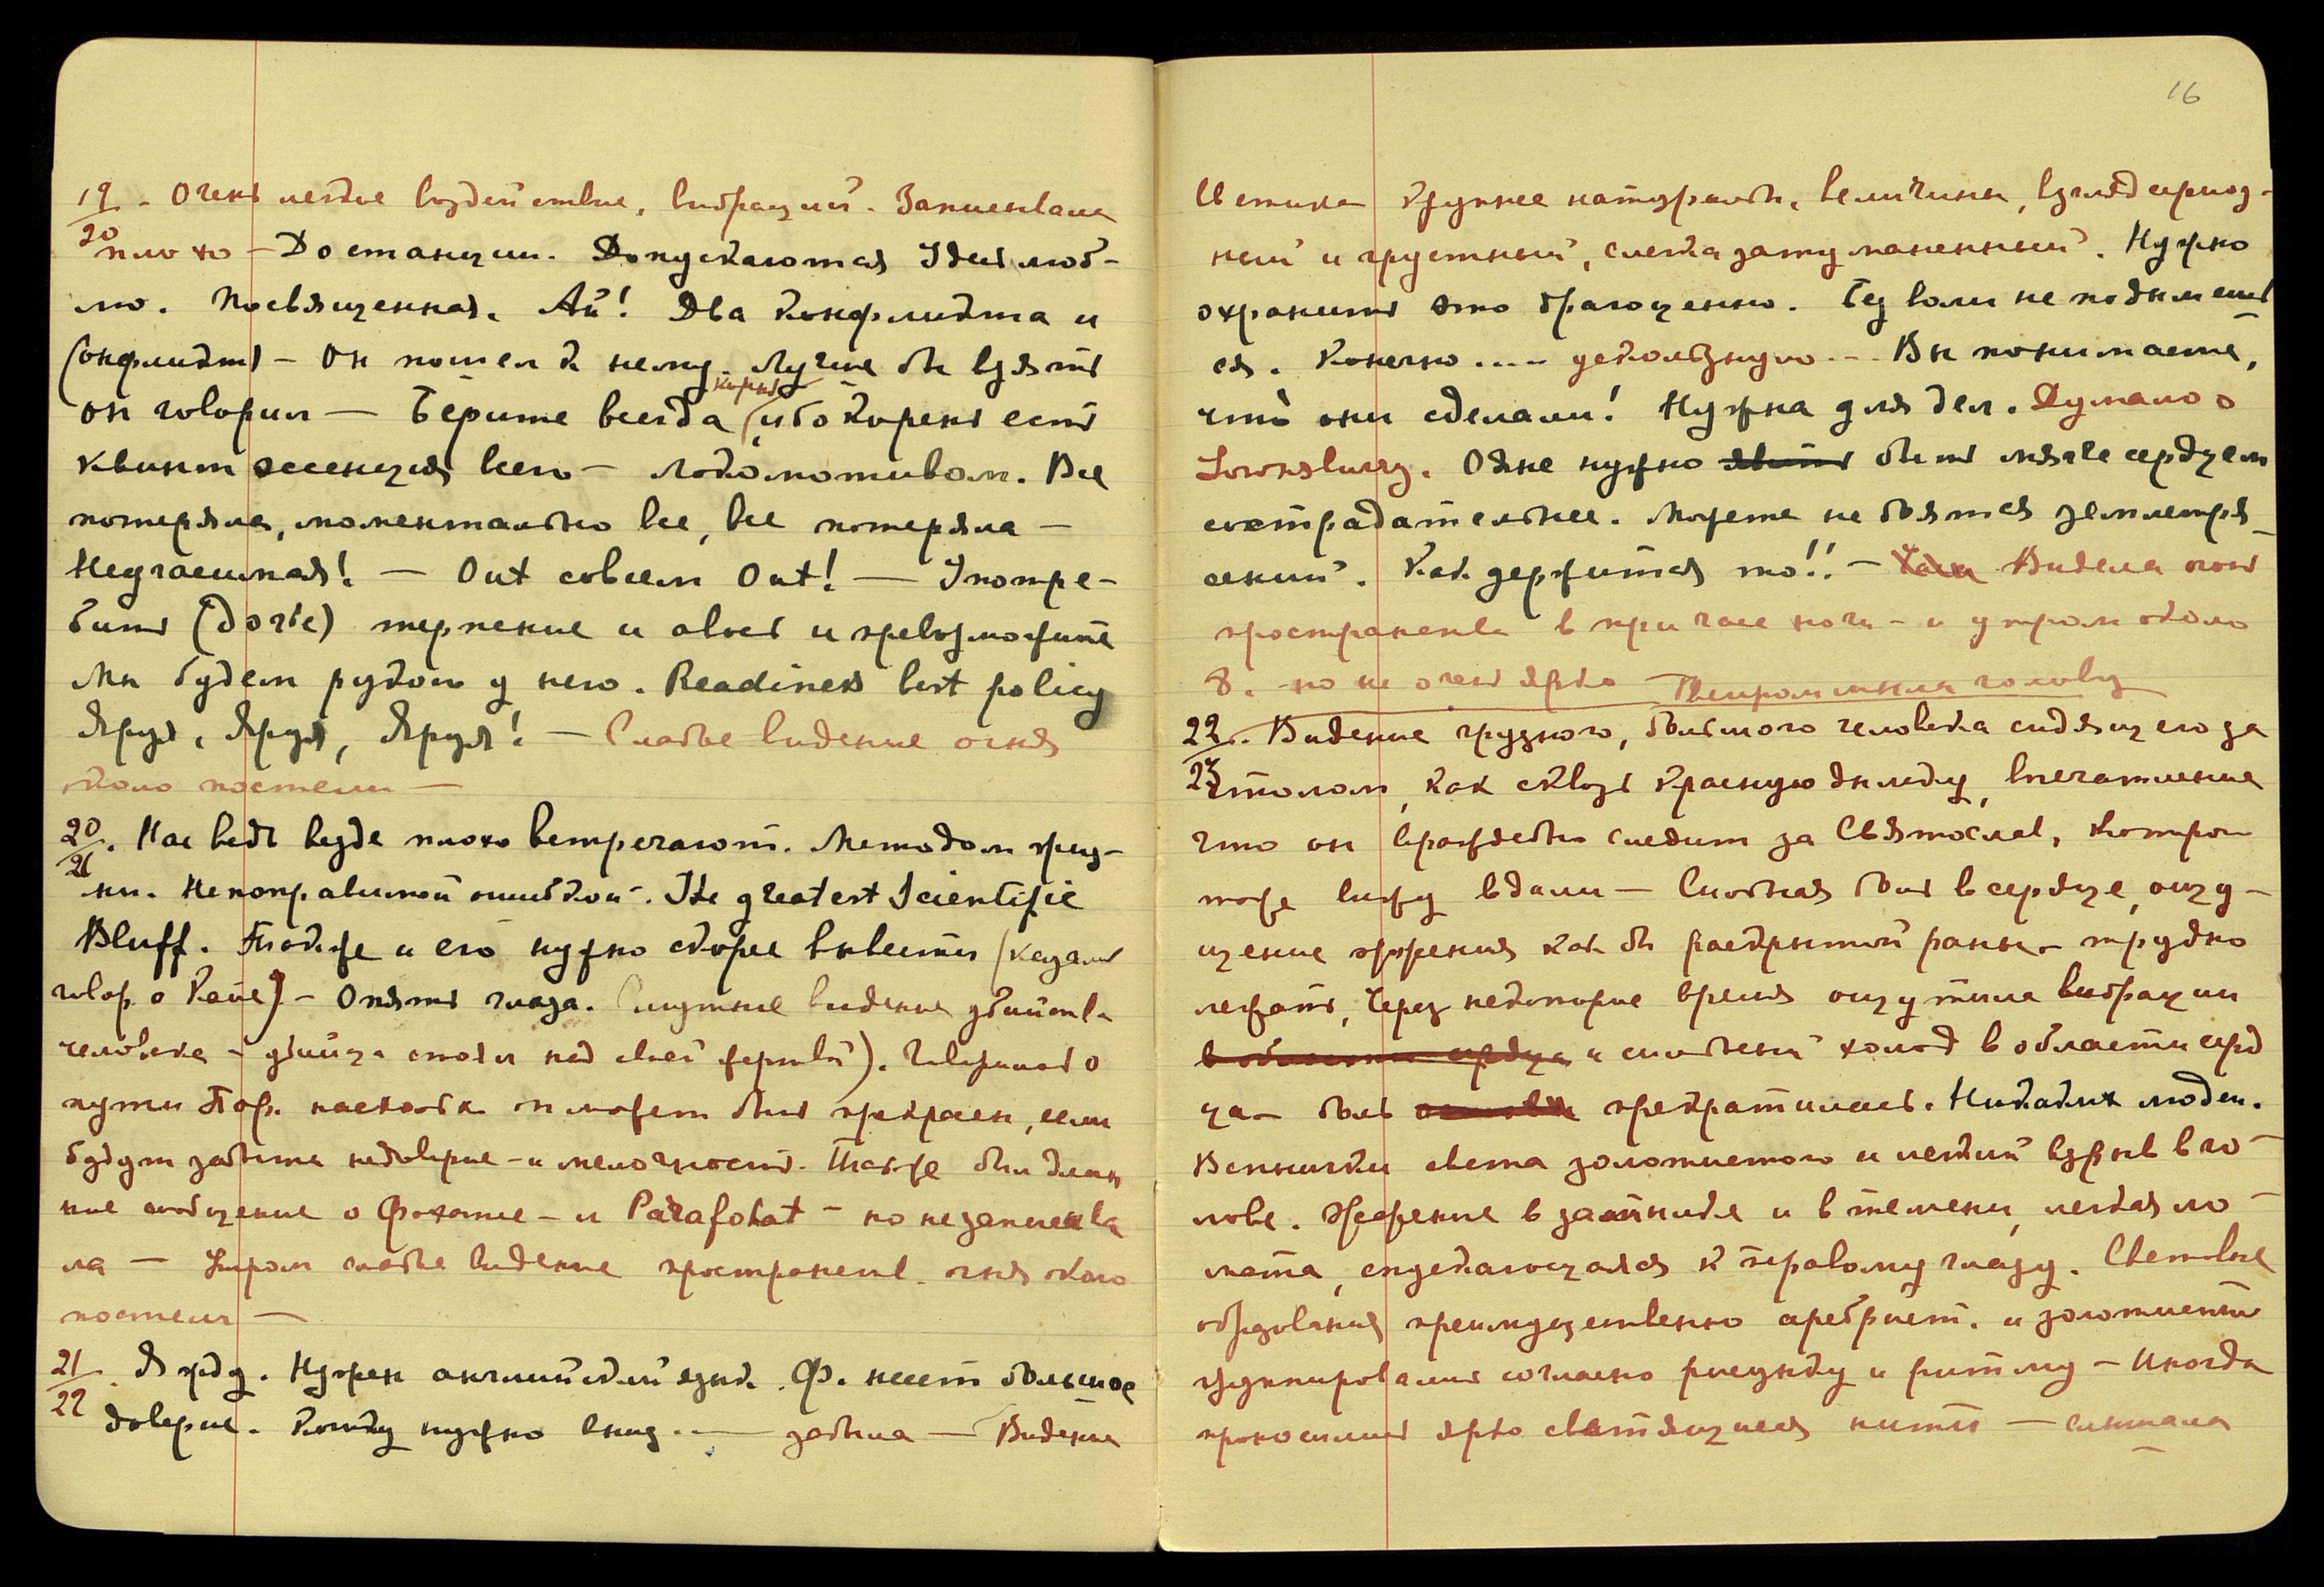 19/20 - Очень легкое воздействие, вибраций. Записывала
плохо - До станции. Допускаются Идеи люб-
лю. Посвященная. Ай! Два конфликта и
конфликт - Он пошел к нему. Лучше бы взять
он говорил — Берите всегда корень ибо корень есть
квинтэссенция всего - локомотивом. Все
потеряла, моментально все, все потеряла -
Неугасимая! — Out совсем Out! — Употре-
бить терпение и и превозможите
Мы будем рукою у него. Readiness best policy
Яруя, Яруя, Яруя! - Слабое видение огня
около постели —
20/21. Нас ведь везде плохо встречают. Методом
Непоправимой ошибкой. The greatest Scientific
Bluff. Также и его нужно скорее вывести (кажется
говор. о ) - Опять глаза. Смутное видение убийства
человека - убийца стоял над своей жертвой). Говорилось о
пути Пор. насколько п. может быть прекрасен, если
будут забыты недоверие - и мелочность. Также был длин
ное сообщение о Фохате - и Parafohat - но не записыва
ла — Утром слабое видение пространств. огня около
постели —
21/22. Я жду. Нужен английский язык. Ф. несет большое
доверие. нужно вниз .— забыла — Видение
16
Цветика крупнее натуральн. величины, взгляд серьоз-
ный и грустный, слегка затуманенный. Нужно
охранить это драгоценно. Без воли не поднимешь
ся. Конечно .... ускользнуло --- Вы понимаете,
что они сделали! Нужна для дел. Думаю о
Ояне нужно явить быть мягче сердцем
сострадательнее. Можете не бояться землетря-
сений. Как держится то!! - Видела огонь
пространства в три часа ночи - и утром около
8. - но не очень ярко голову
22/23. Видение грузного, большого человека сидящего за
столом, как сквозь красную дымку, впечатление
что он враждебно следит за Святослав, которого
тоже вижу вдали — Сильная боль в сердце, ощу-
щение жжения как бы раскрытой раны - трудно
лежать, Через некоторое время ощутила вибрации
в области сердца и сильный холод в области серд
ца - боль прекратилась. Никаких людей.
Вспышки света золотистого и легкий взрыв в го-
лове. Жжение в затылке и в темени, легкая ло-
мота, спускающаяся к правому глазу. Световые
образования преимущественно серебрист. и золотистые
группировались согласно рисунку и ритму - Иногда
проносились ярко светящиеся нити — слышала